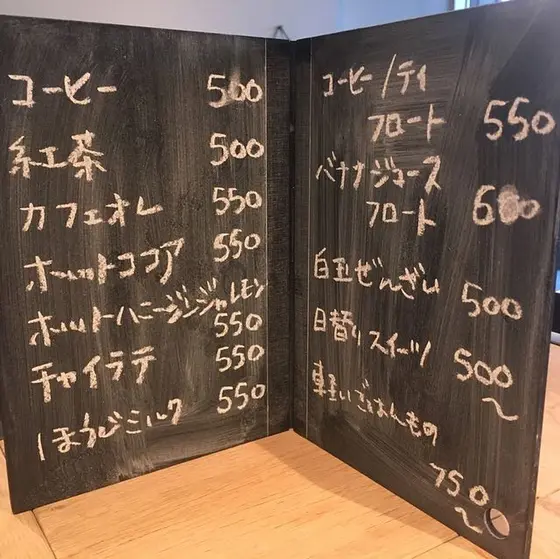 コーヒー 500
紅茶 500
カフェオレ 550
ホットココア 550
ホットハニージンジャレモン
550
チャイラテ 550
ほうじミルク 550
コーヒー/ティ
フロート 550
バナナジュース
フロート 600
白玉ぜんざい
500
日替りスイーツ
500
〜
軽いごはんもの
750
〜